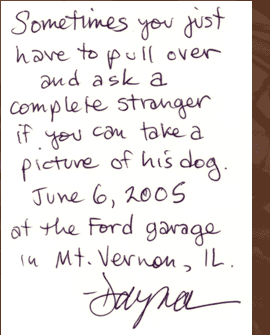 Sometimes you just
have to pull over
and ask a
complete stranger
if you can take a
picture of his dog.
June 6, 2005
at the Ford garage
in Mt. Vernon, IL.
-Dayna